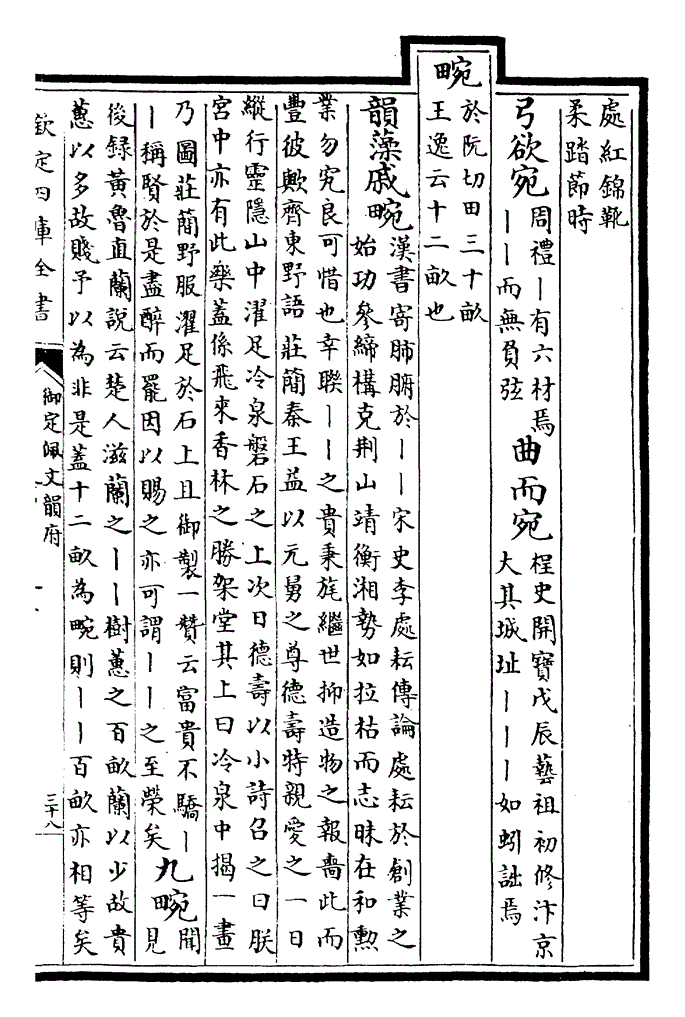 處紅錦靴
柔踏節時
弓欲宛 周禮〡有六材焉
〡〡而無負弦
曲而宛 桯史開寶戊辰藝祖初修汴京
大其城址〡〡〡如蚓詘焉
畹 於阮切田三十畝
王逸云十二畝也
韻藻戚畹 漢書寄肺腑於〡〡宋史李處耘傳論處耘於創業之
始功參締構克荆山靖衡湘勢如拉枯而志昧在和勲
業勿究良可惜也幸聨〡〡之貴秉旄繼世抑造物之報嗇此而
豐彼歟齊東野語莊簡秦王益以元舅之尊德壽特親愛之一日
縱行靈隱山中濯足冷泉磐石之上次日德壽以小詩召之曰朕
宮中亦有此樂蓋係飛來香林之勝架堂其上曰冷泉中揭一畫
乃圖莊簡野服濯足於石上且御製一贊云富貴不驕〡
〡稱賢於是盡醉而罷因以賜之亦可謂〡〡之至榮矣
九畹 聞
見
後録黃魯直蘭說云楚人滋蘭之〡〡樹蕙之百畝蘭以少故貴
蕙以多故賤予以為非是蓋十二畝為畹則〡〡百畝亦相等矣
欽定四庫全書
御定佩文韻府
三十八